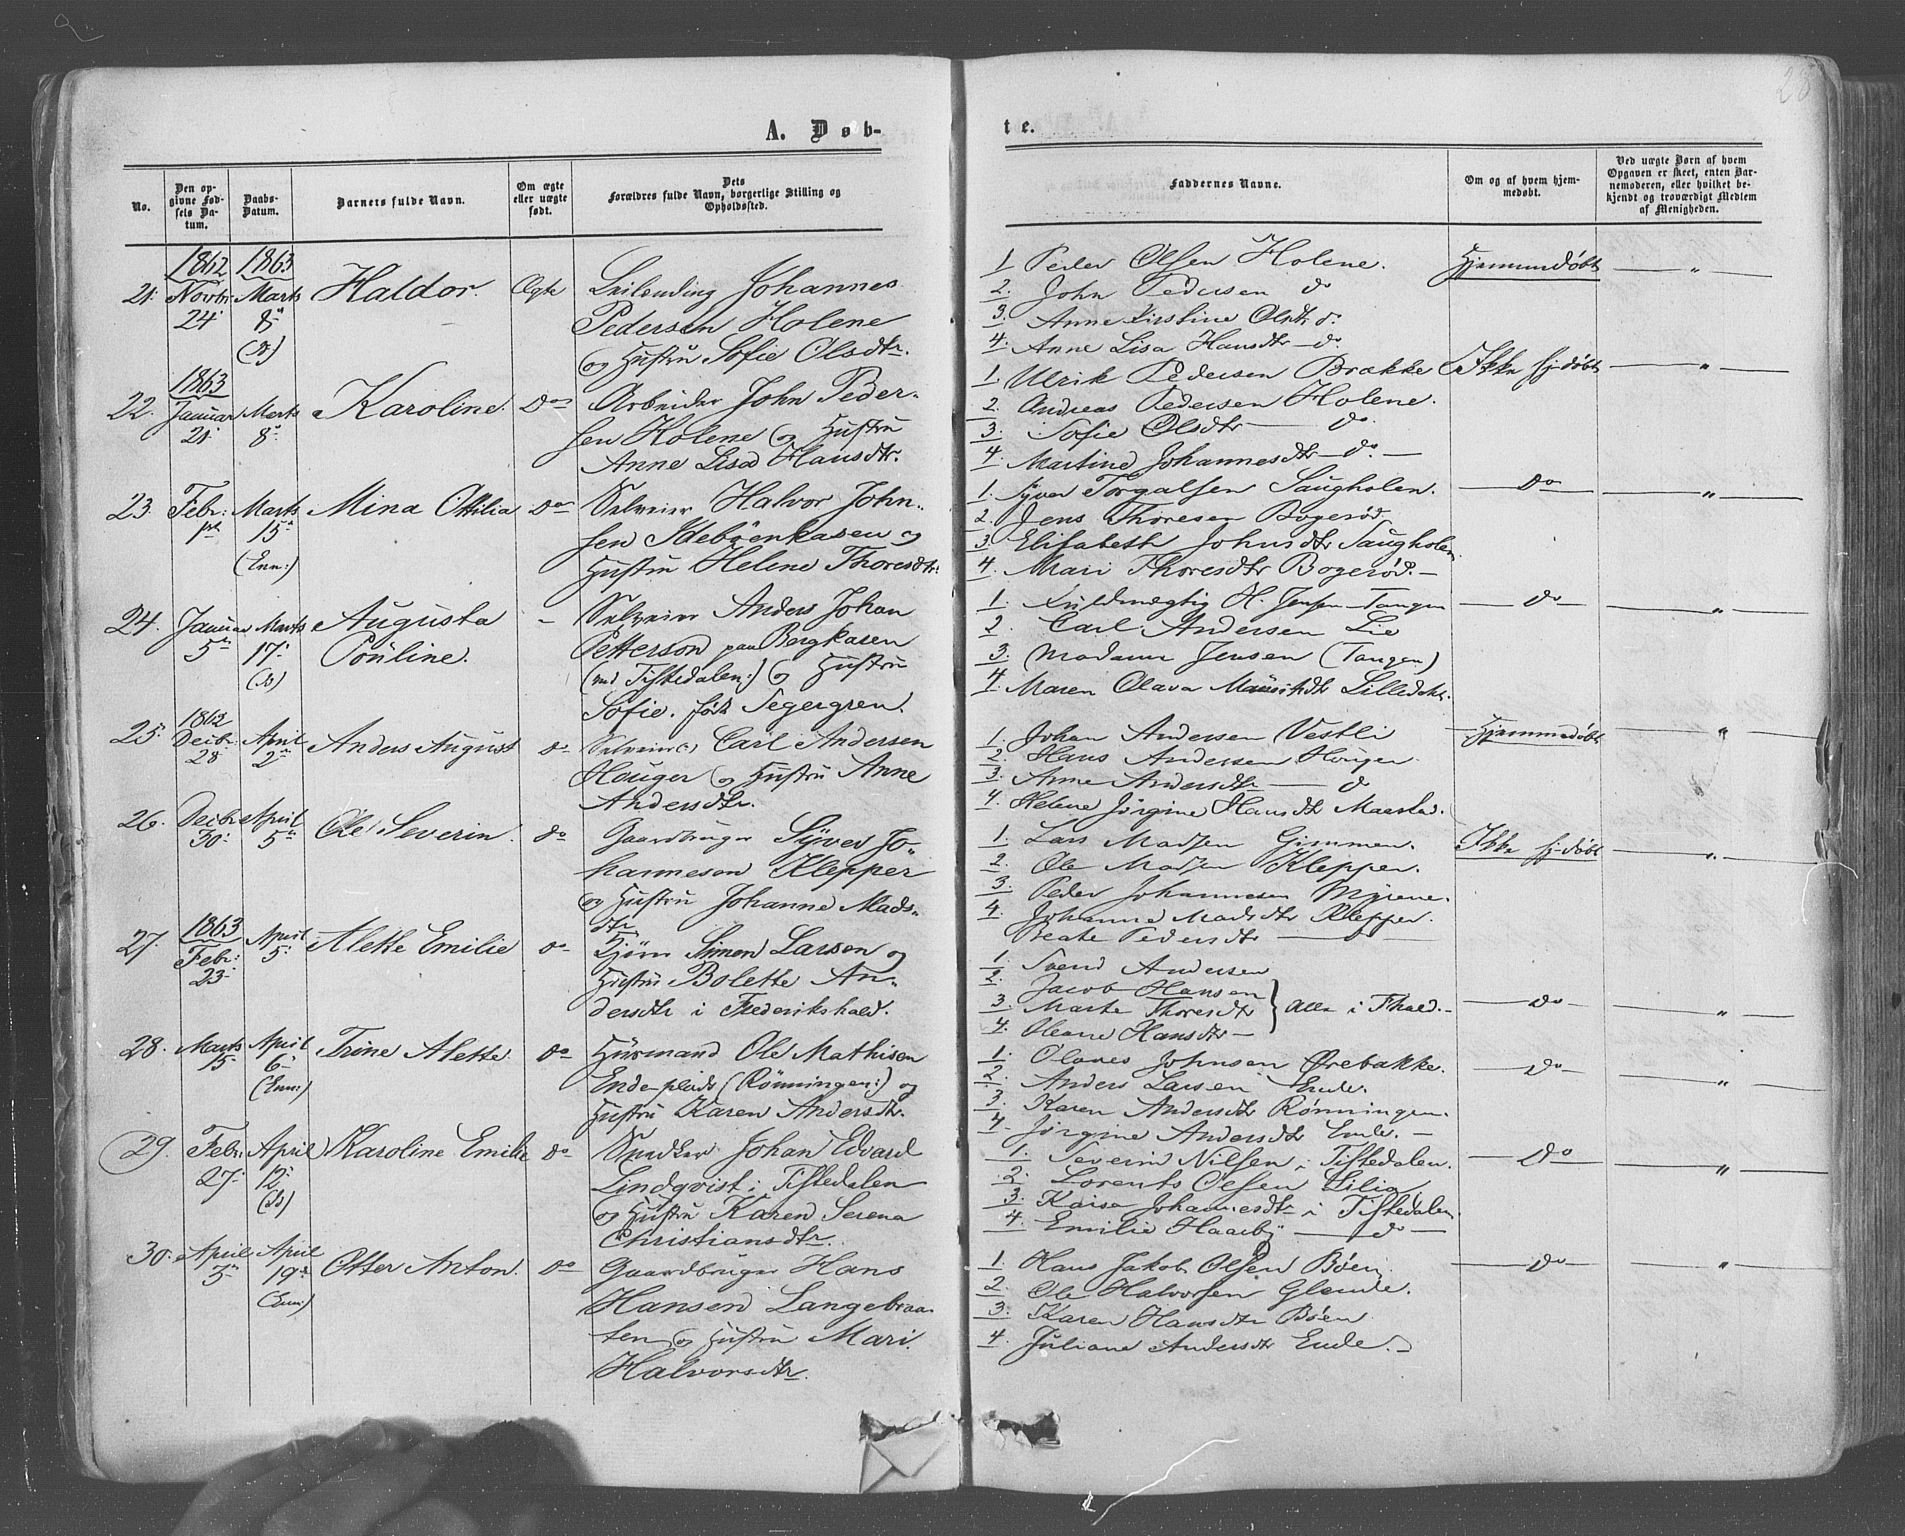 28
A. Døb-
te.
No.
Den op-
givne Fød-
sels Da-
tum.
Daabs-
Datum.
Barnets fulde Navn.
Om ægte
eller uægte
født.
Dets
Forældres fulde Navn, borgerlige Stilling og
Opholdssted.
Faddernes Navne.
Om og af hvem hjem-
medøbt.
Ved uægte Børn af hvem
Opgaven er skeet, enten Bar-
nemoderen, eller hvilket be-
kjendt og troværdigt Medlem
af Menigheden.
1862 1863
21. Novbr Marts Haldor. Ægte Leilænding Johannes
24 8
Pedersen Holene
og Hustru Sofie Olsdtr.
1 Peder Olsen Holene. Hjemmedøbt "
2. John Pedersen do
3. Anne Kirstine Olsdtr do.
4. Anne Lisa Hansdtr do.
1863
22. Januar Marts Karoline. Do Arbeider John Peder-
21 8
sen Holene og Hustru
Anne Lisa Hansdtr.
1. Ulrik Pedersen Brække Ikke hj-døbt "
2. Andreas Pedersen Holene.
3. Sofie Olsdtr do.
4. Martine Johannesdtr do.
23. Febr: Marts Mina Ottilia Do Selveier Halvor John-
1ste 15
(Enn:)
sen Idebøenkasen og
Hustru Helene Thoresdtr.
1. Syver Torgalsen Saugholen. Do "
2. Jens Thoresen Bogerød.
3. Elisabeth Johnsdtr Saugholen
4. Mari Thoresdtr Bogerød.
24. Januar Marts Augusta - Selveier Anders Johan
5 17
Pouline.
Petterson paa Bergkasen
(ved Tistedalen:) og Hustru
Sofie. født Segergren.
1. Fuldmægtig H. Jensen Tangen do "
2. Carl Andersen Lie
3. Madame Jensen (Tangen)
4. Maren Olava Lilledal.
1862
25. Decbr: April Anders August do Selveier Carl Andersen
28 2
Houger og Hustru Anne
Andersdtr.
1. Johan Andersen Vestli Hjemmedøbt "
2. Hans Andersen Houger.
3. Anne Andersdtr do
4. Helene Jørgine Hansdtr
26. Decbr April Ole Severin. do Gaardbruger Syver Jo-
30. 5
hannesen Klepper
og Hustru Johanne Mads-
dtr
1. Lars Madsen Gimmen. Ikke hj-døbt "
2. Ole Madsen Klepper.
3. Peder Johannesen Myrene.
4. Johanne Madsdtr Klepper.
Beate Pedersdtr do
1863
27. Febr: April Alette Emilie do Simon Larsen og
23. 5.
Hustru Bolette An-
dersdtr i Frederikshald.
1. Svend Andersen
2. Jacob Hansen
3. Marte Thoresdtr } Alle i Fhald. do "
4. Oleane Hansdtr
28. Marts April Trine Alette. do Huusmand Ole Mathisen
15 6
(Enn:)
Ende-plads (Rønningen:) og
Hustru Karen Andersdtr.
1. Olaves Johnsen Ørebække. do "
2. Anders Larsen Ende.
3. Karen Andersdtr Rønningen.
4. Jørgine Andersdtr Ende.
29. Febr. April Karoline Emilie do Snedker Johan Edvard
27. 12
Lindqvist i Tistedalen
og Hustru Karen Serena
Christiansdtr.
1. Severin Nilsen i Tistedalen. do "
2. Lorents Olsen Lilia
3. Kaisa Johannesdtr i Tistedalen
4. Emilie Haaby do
30. April April Otter Anton. do Gaardbruger Hans
3 19
(Enn:)
Hansen Langebraa-
ten og Hustru Mari
Halvorsdtr.
1. Hans Jakob Olsen Bøen do "
2. Ole Halvorsen Glende.
3. Karen Hansdtr Bøen
4. Juliane Andersdtr Ende.